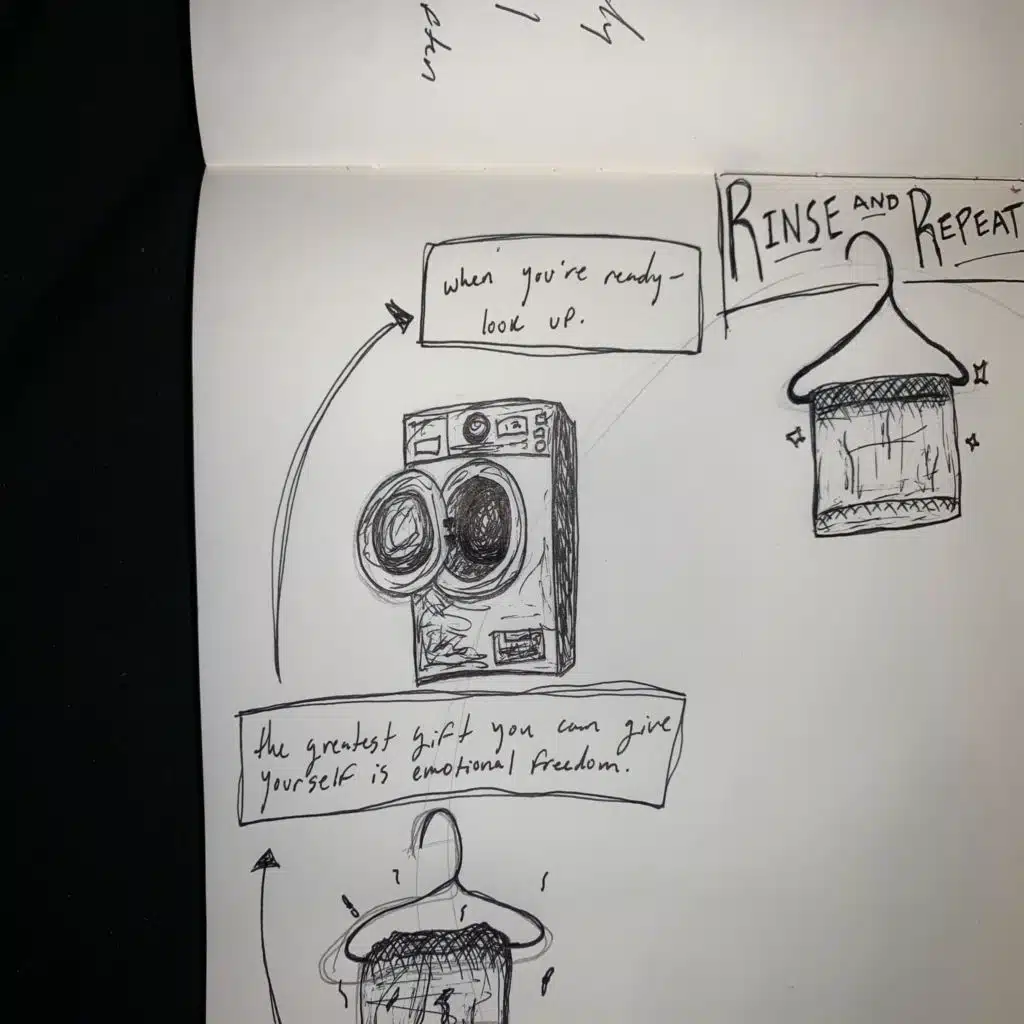 RINSE AND REPEAT
when you're ready-
look up.
the greatest gift you can give
yourself is emotional freedom.